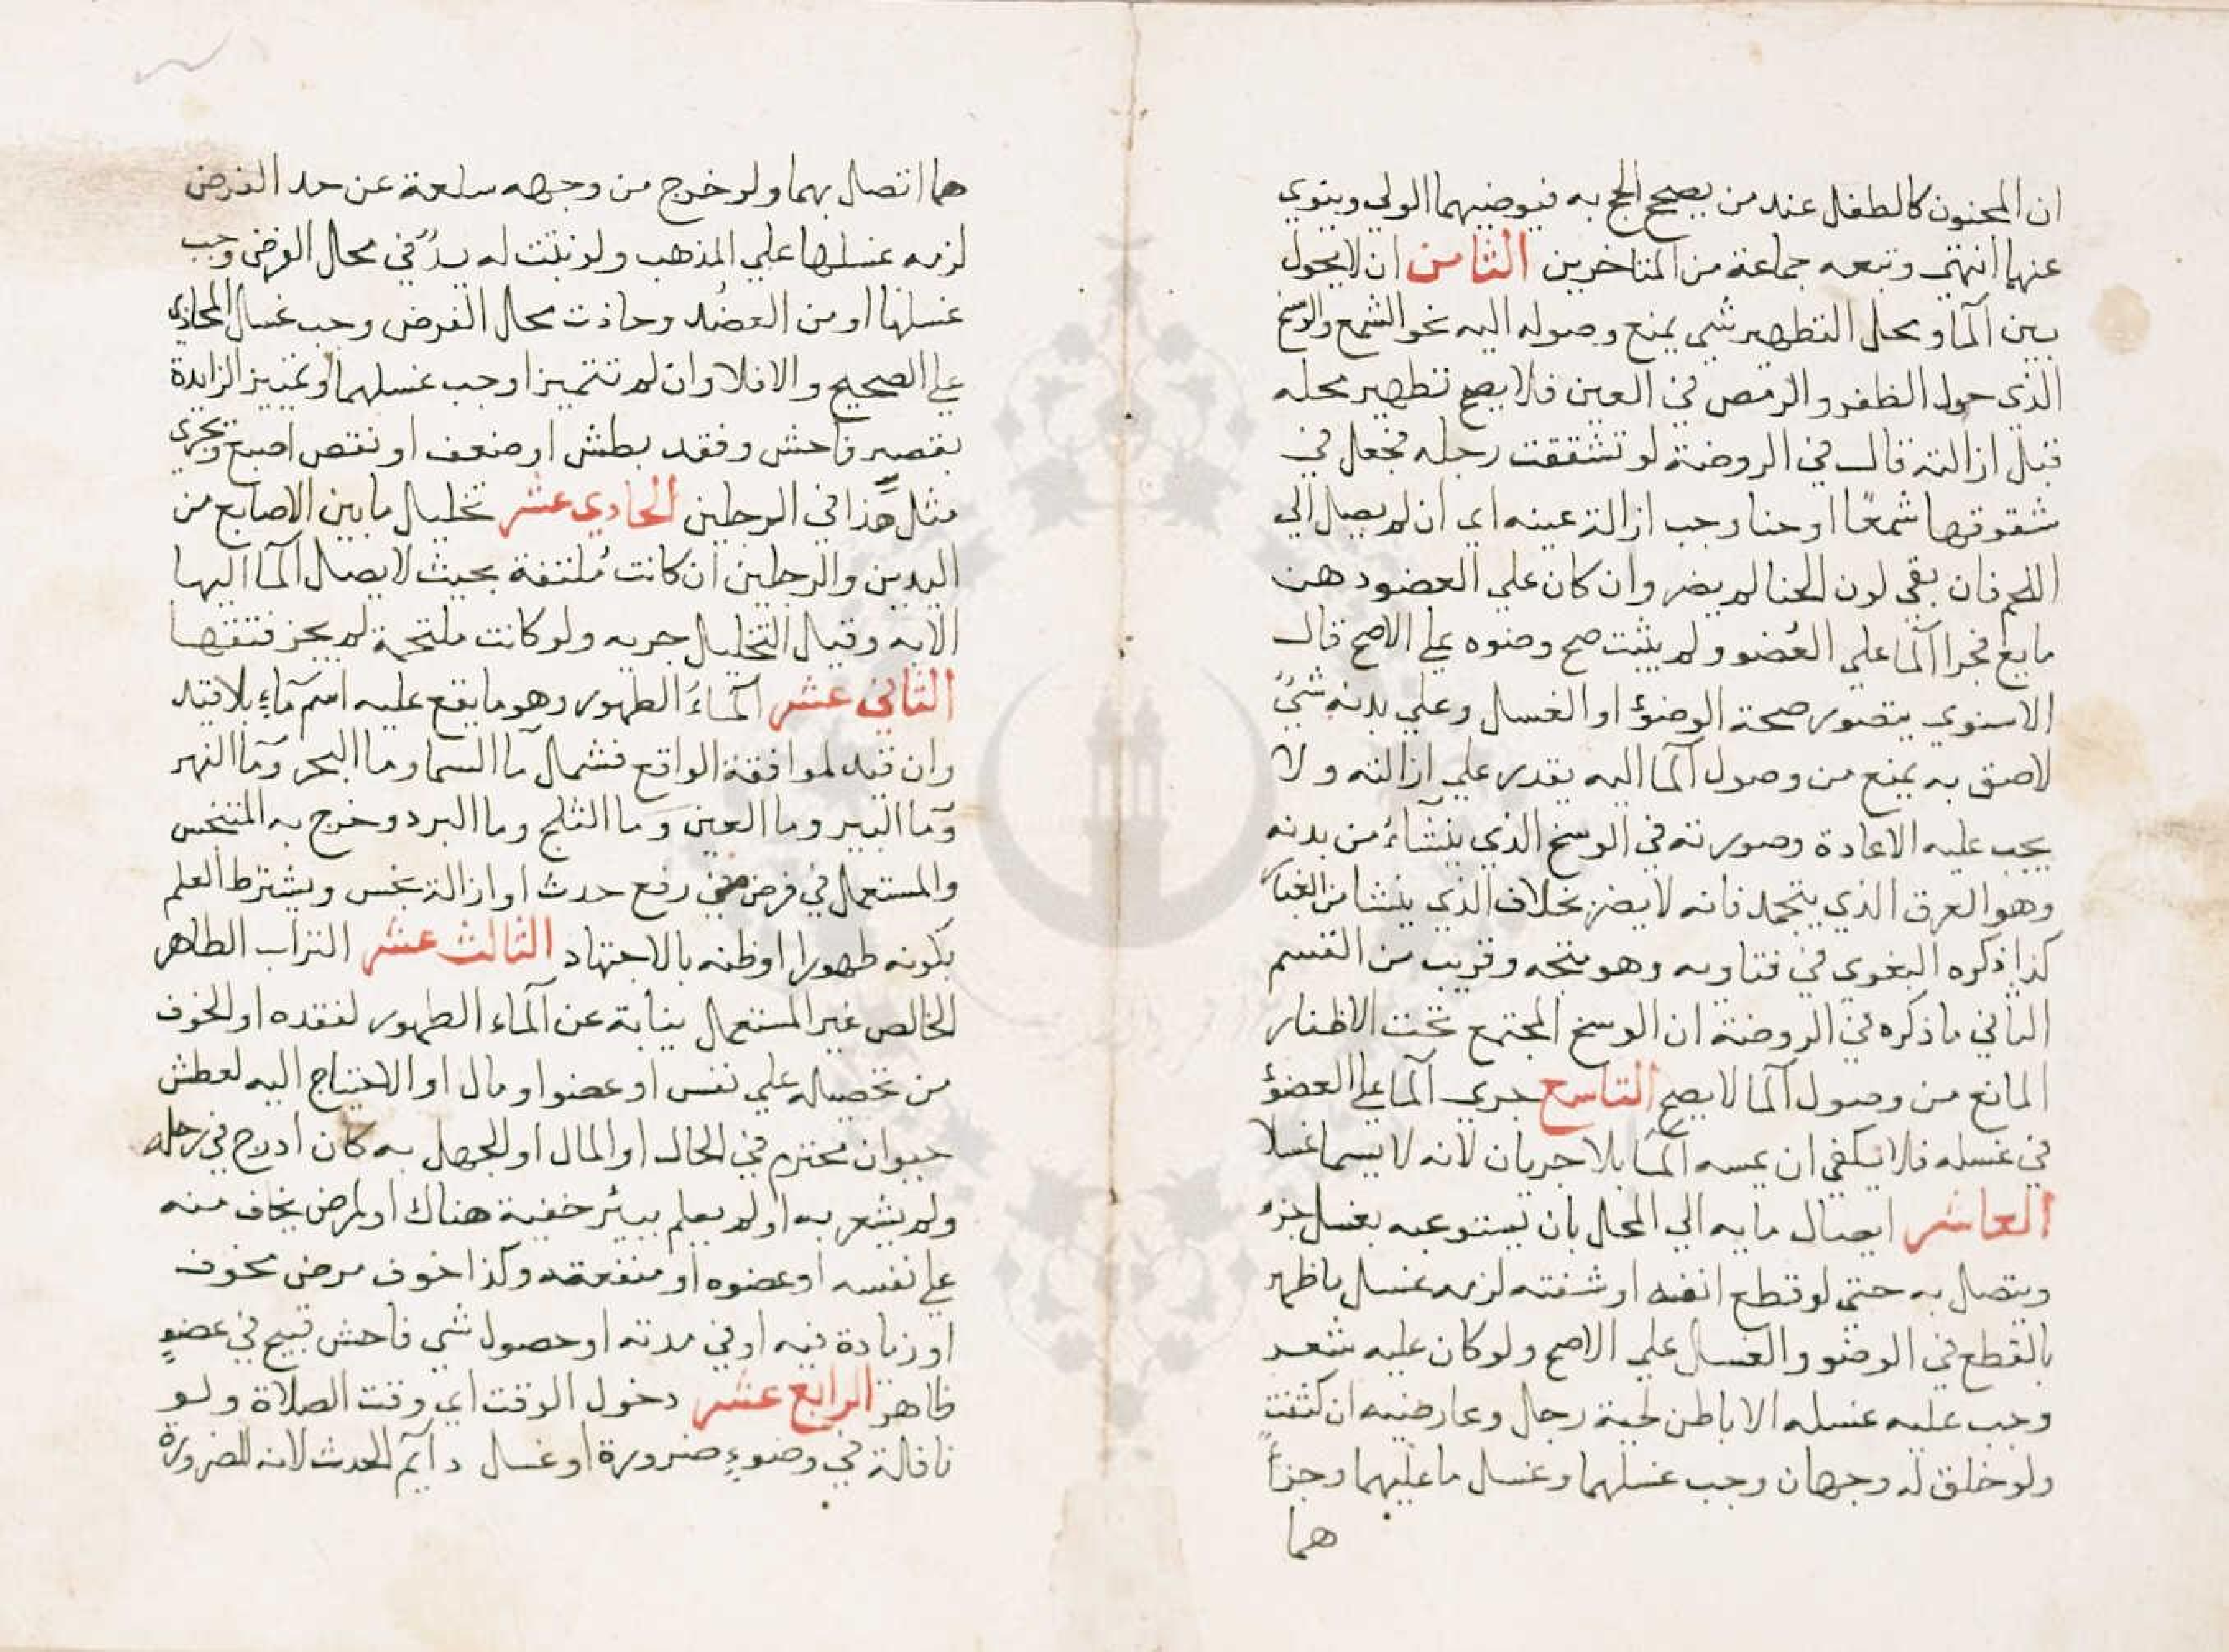 ان المجنون كالطفل عند من يصحح الحج به فيوضيهما الولي وينوي
عنهما انتهى وتبعه جماعة من المتاخرين الثامن ان لا يحول
بين الما ومحل التطهير شي يمنع وصوله اليه نحو الشمع والوسخ
الذي حول الظفر والرمص في العين فلا يصح تطهير محله
قبل ازالته قال في الروضة لو تشققت رجله فجعل في
شقوقها شمعًا او حنا وجب ازالة عينه اي ان لم يصل الي
اللحم فان بقي لون الحنا لم يضر وان كان علي العضو دهن
مايع فجرا الما علي العُضو ولم يثبت صح وضوه علي الاصح قال
الاسنوي يتصور صحة الوضوُ او الغسل وعلي بدنه شيٌ
لاصق به يمنع من وصول الما اليه يقدر علي ازالته ولا
يجب عليه الاعادة وصورته في الوسخ الذي ينشاءُ من بدنه
وهو العرق الذي يتجمد فانه لا يضر بخلاف الذي ينشا من الغبار
كذا ذكره البغوي في فتاويه وهو متجه وقريب من القسم
الثاني ما ذكره في الروضة ان الوسخ المجتمع تحت الاظفار
المانع من وصول الما لا يصح التاسع جري الما علي العضوُ
في غسله فلا يكفي ان يمسه الما بلا جريان لانه لا يسما غسلا
العاشر ايصال مايه الي المحل بان يستوعبه بغسل جزء
ويتصل به حتي لو قطع انفه او شفته لزمه غسل ما ظهر
بالقطع في الوضو والغسل علي الاصح ولو كان عليه شعر
وجب عليه غسله الا باطن لحية رجل وعارضيه ان كثفت
ولو خلق له وجهان وجب غسلهما وغسل ما عليهما وجزأً
هما
هما اتصل بهما ولو خرج من وجهه سلعة عن حد الفرض
لزمه غسلها علي المذهب ولو نبتت له يدٌ في محل الفرض وجب
غسلها او من العضُد وحاذت محل الفرض وجب غسل المحاذي
علي الصحيح والا فلا وان لم تتميزا وجب غسلهما وتمييز الزايدة
بقصر فاحش وفقد بطش او ضعف او نقص اصبع ويجري
مثل هذا في الرجلين الحادي عشر تخليل ما بين الاصابع من
اليدين والرجلين ان كانت مُلتفة بحيث لا يصل الما اليها
الا به وقيل التخليل جريه ولو كانت ملتحمة لم يجز فتقها
الثاني عشر الماءُ الطهور وهو ما يقع عليه اسم ماءٍ بلا قيد
وان قيد لموافقة الواقع فشمل ما السما وما البحر وما النهر
وما البير وما العين وما الثلج وما البرد وخرج به المتنجس
والمستعمل في فرض من رفع حدث او ازالة نجس ويشترط العلم
بكونه طهورا او ظنه بالاجتهاد الثالث عشر التراب الطاهر
الخالص غير المستعمل نيابة عن الماء الطهور لفقده او للخوف
من تحصيله علي نفس او عضو او مال او الاحتياج اليه لعطش
حيوان محترم في الحال او المال او للجهل به كان ادرج في رحله
ولم يشعر به او لم يعلم ببئر خفية هناك او لمرض يخاف منه
علي نفسه او عضوه او منفعته وكذا خوف مرض مخوف
او زيادة فيه او في مدته او حصول شي فاحش قبيح في عضوٍ
ظاهر الرابع عشر دخول الوقت اي وقت الصلاة ولو
نافلة في وضوءِ ضرورة او غسل دايم الحدث لانه للضرورة